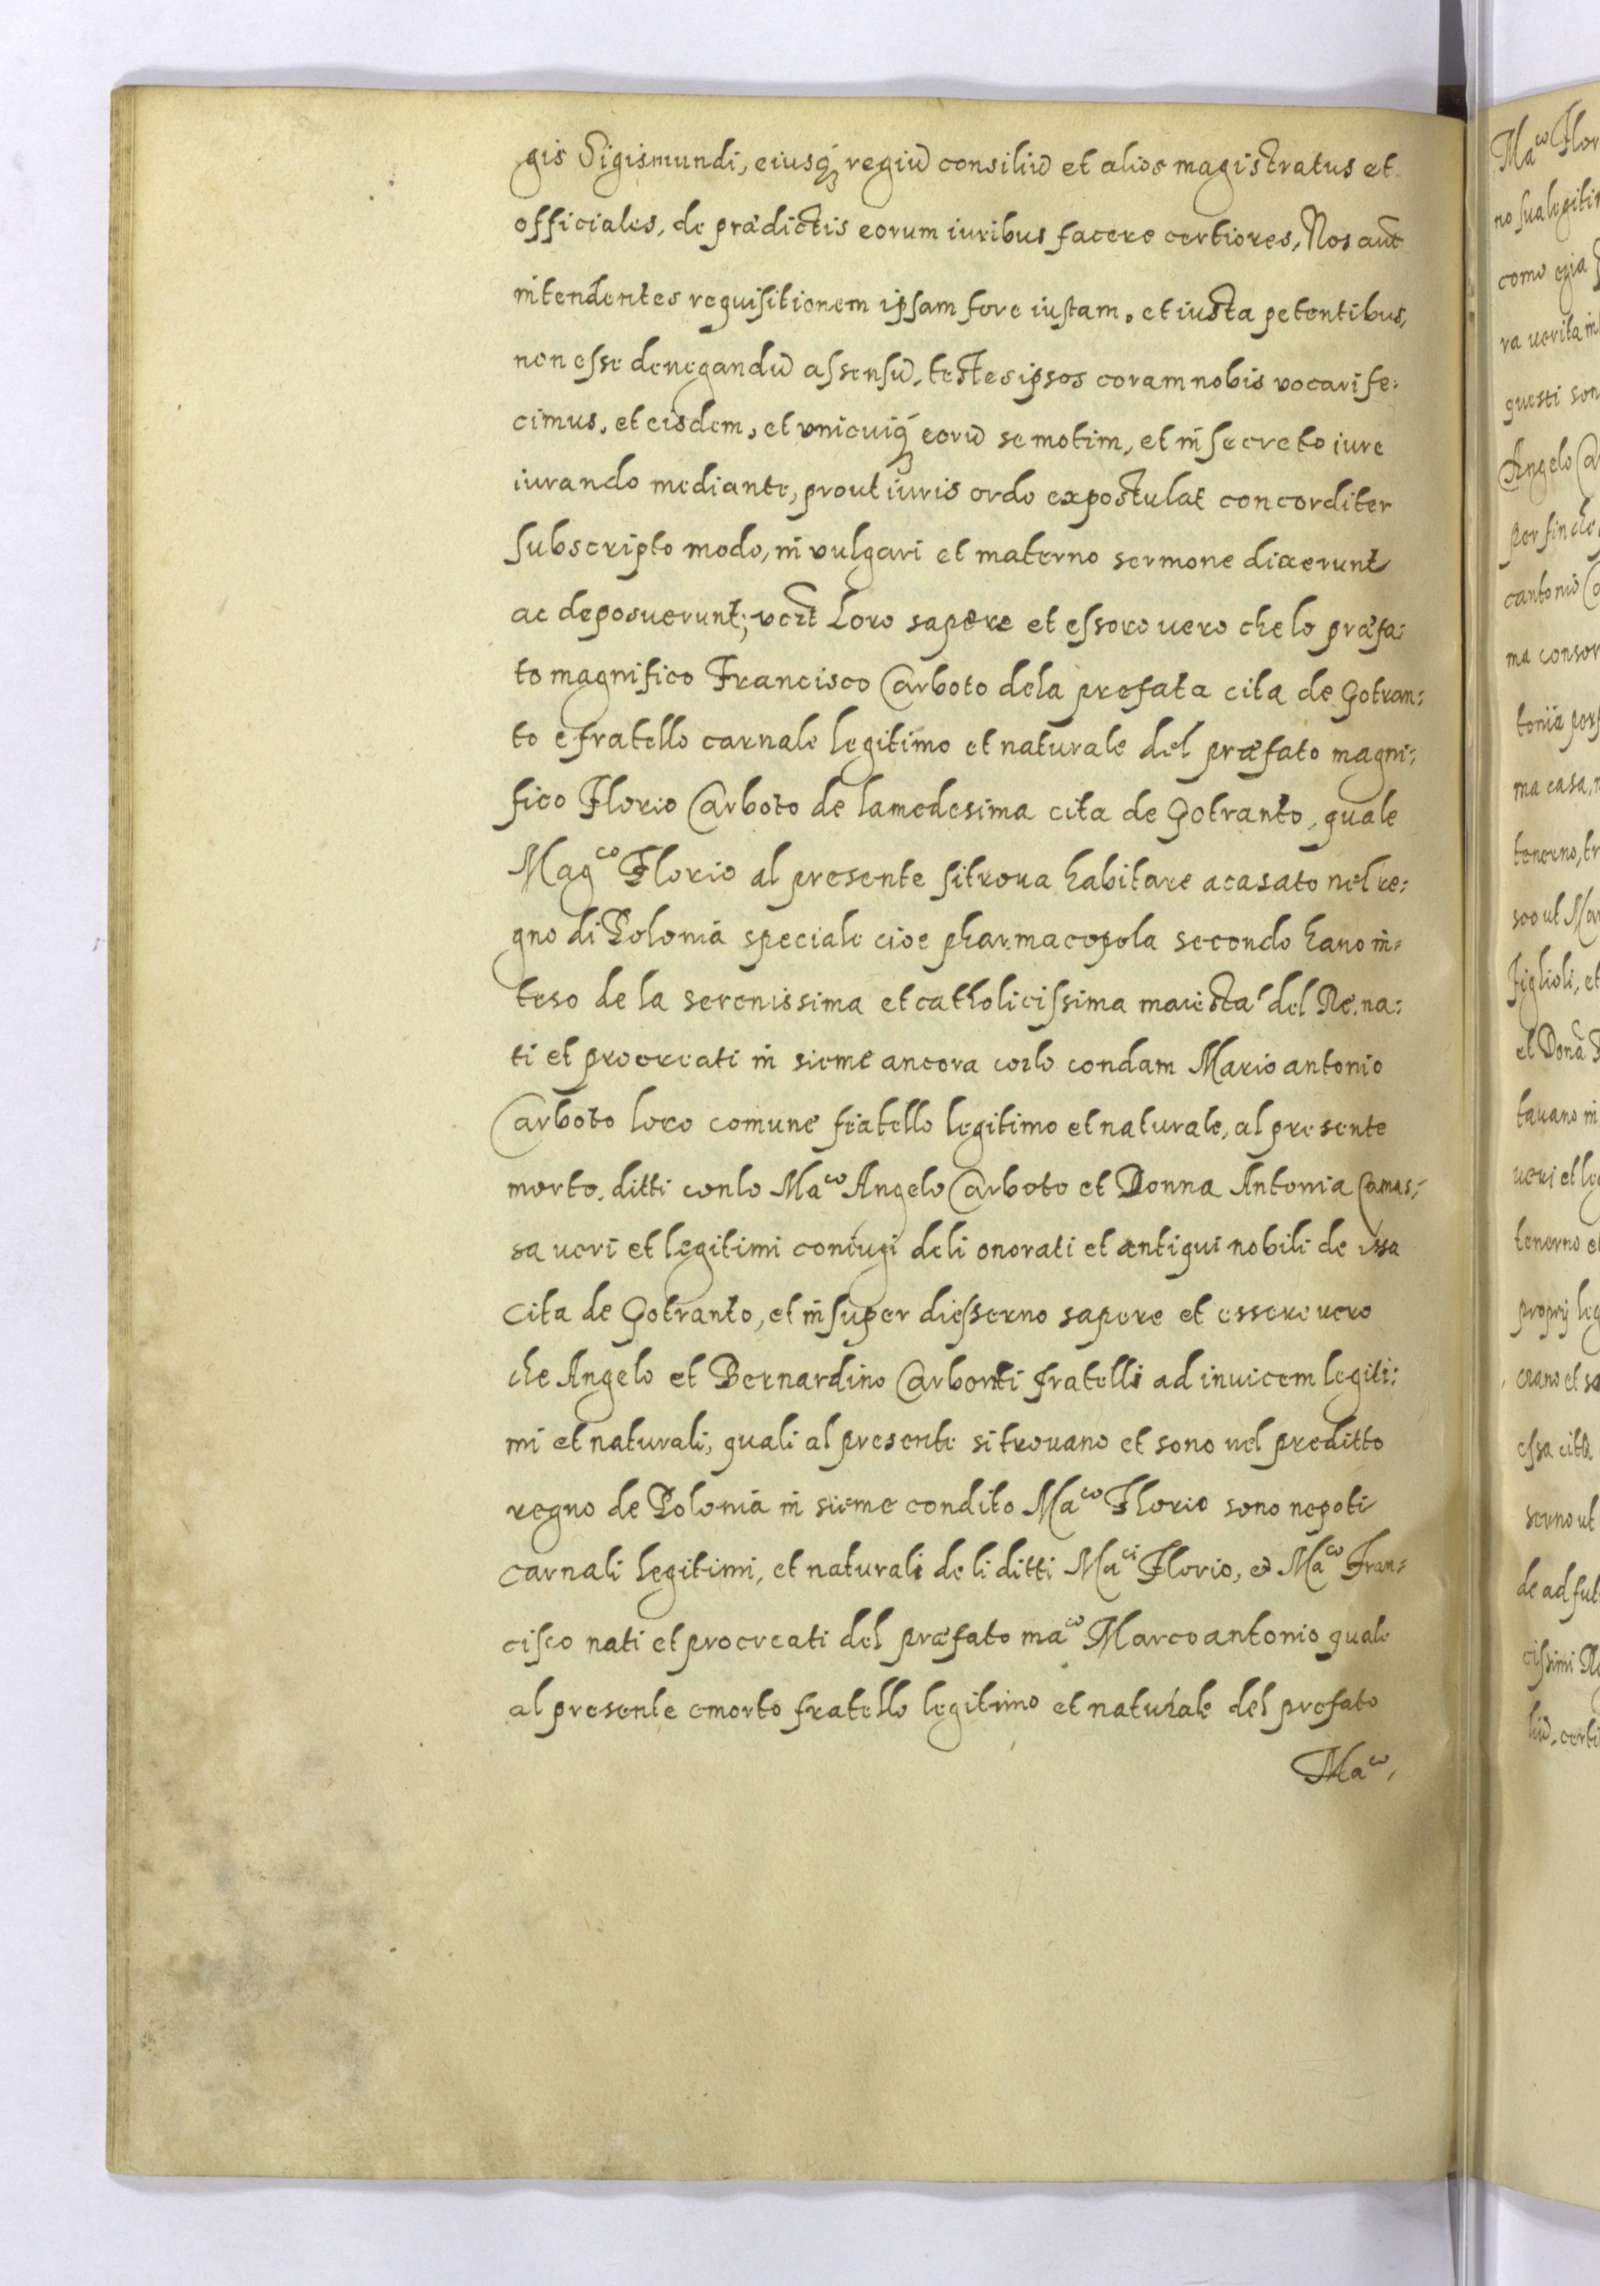 gis Sigismundi, eiusq́ꝫ regiū consiliū et alios magistratus et
officiales, de prædictis eorum iuribus facere certiores, Nos aut̃
intendentes requisitionem ipsam fore iustam, et iusta petentibus,
non esse denegandū assensū, testes ipsos coram nobis vocari fe:
cimus, et eisdem, et vnicuiq́ꝫ eorū semotim, et in secreto iure
iurando mediante, prout iuris ordo expostulat concorditer
subscripto modo, in vulgari et materno sermone dixerunt
ac deposuerunt; vz̃t Loro sapere et essoro uero che lo præfa:
to magnifico Francisco Carboto dela prefata cita de Gotran:
to e fratello carnale legitimo et naturale del præfato magni:
fico Florio Carboto de la medesima cita de Gotranto, quale
Mag.co Florio al presente si troua habitare acasato nel re:
gno di Polonia speciale cioe pharmacopola secondo hano in:
teso de la serenissima et catholicissima maiesta del Re. na:
ti et procreati in sieme ancora co lo condam Mario antonio
Carboto loro comune fratello legitimo et naturale, al presente
morto. ditti con lo Ma.co Angelo Carboto et Donna Antonia Camas:
sa ueri et legitimi coniugi deli onorati et antiqui nobili de issa
Cita de Gotranto, et in super diesserno sapere et essere uero
che Angelo et Bernardino Carbonti fratelli ad inuicem legiti:
mi et naturali, quali al presente si trouano et sono nel preditto
regno de Polonia in sieme con dito Ma.co Florio sono nepoti
carnali legitimi, et naturali de li ditti Ma.ci Florio, et Ma.co Fran:
cisco nati et procreati del præfato ma.co Marcoantonio quale
al presente e morto fratello legitimo et naturale del prefato
Ma.co,
Ma.co Flor
no sua legiti
como
ra uerita in
questi son
Angelo Ca
per fin che
cantonio C
ma consor
tonia
ma casa,
tenerno, tr
figlioli, et
et Dona
tauano in
ueri et leg
tenerno et
proprij leg
crano et sa
essa cita
serno ut
de ad fut
cissimi Re
liū, certi